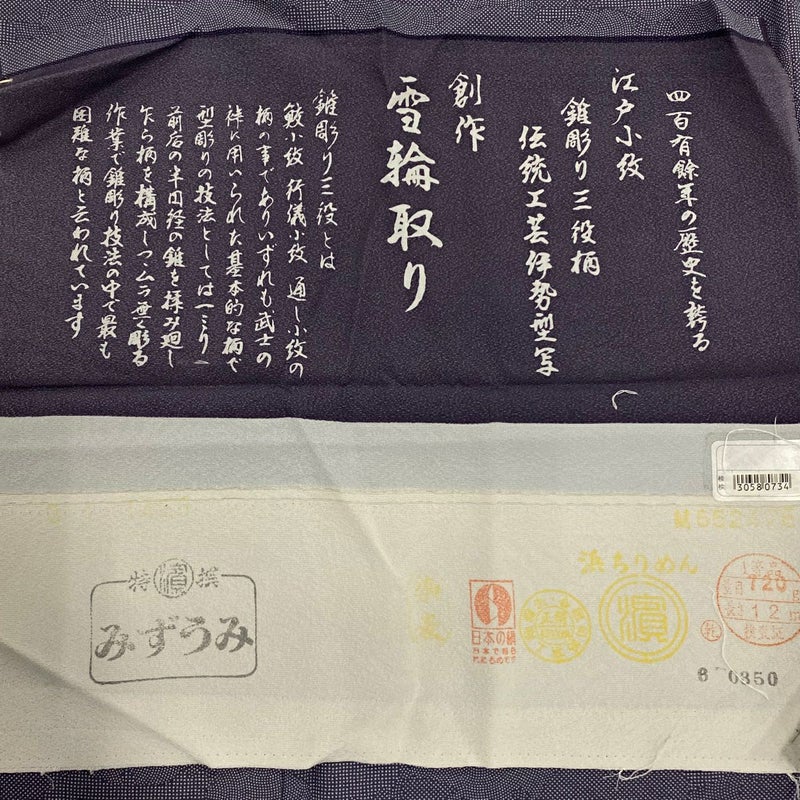 四百有餘年の歴史を誇る
江戸小紋
錐彫り三役柄
伝統工芸伊勢型写
創作
雪輪取り
錐彫り三役とは
鮫小紋 行儀小紋 通し小紋の
柄の事でありいずれも武士の
裃に用いられた基本的な柄で
型彫りの技法としては一ミリ
前后の半円経の錐を揉み廻し
乍ら柄を構成しムラ無く彫る
作業で錐彫り技法の中で最も
困難な柄と云われています
30580734
特 濱 撰
みずうみ
浜ちりめん
日本の絹
濱
720
12